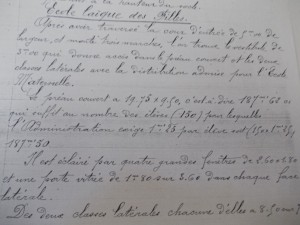 à la hauteur du sol.
Ecole laïque des Filles
Après avoir traversé la cour d'entrée de 5m00 de
largeur, et monté trois marches, on trouve le vestibule de
3m00 qui donne accès dans le préau couvert et les deux
classes latérales avec la distribution admise pour l'Ecole
Maternelle.
Le préau couvert a 19.75 x 9.50, c'est-à-dire 187m 60 ce
qui suffit au nombre des élèves (150) pour lesquelles
l'Administration exige 1m25 par élève soit (150 x 1m25)
187m50
Il est éclairé par quatre grandes fenêtres de 2.60 x 1.80
et une porte vitrée de 1m80 sur 3.60 dans chaque face
latérale.
Des deux classes latérales chacune d'elles a 8.50 sur 7